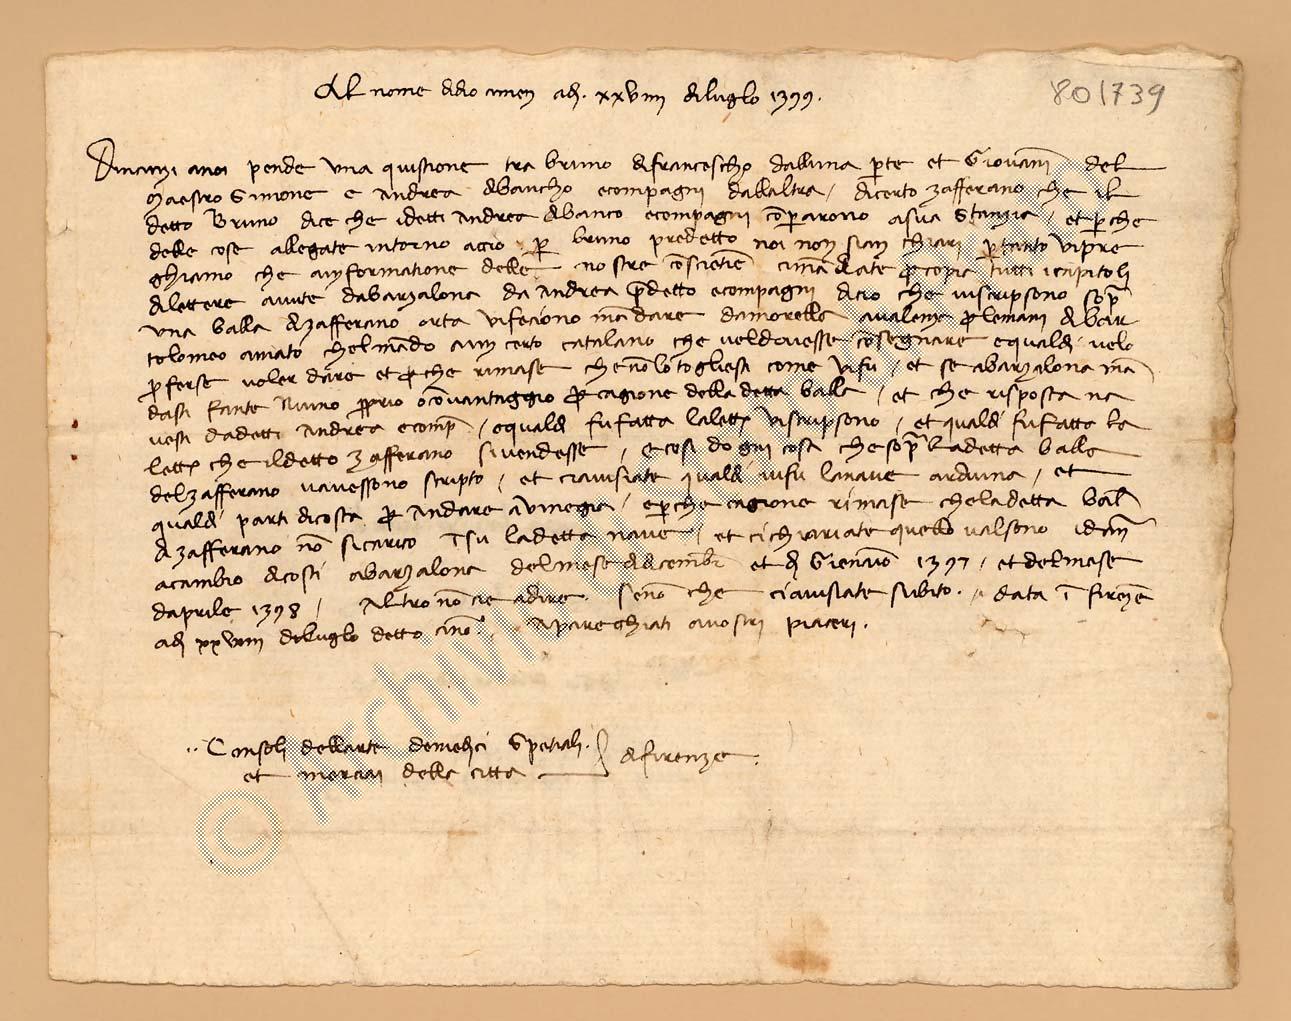 Al nome didio amen adi. xxviiii diluglo 1399.
801739
Dinanzi anoi pende una quistione tra bruno difrancescho dalluna perte et Giovanni del
Maestro Simone e Andrea dibancho ecompagni dallaltra / dicerto zafferano che il
detto Bruno dice che idetti Andrea dibanco ecompagni comperarono asua stanzia / et perche
delle cose allegate intorno acio per bruno predetto noi non siam chiari pertanto vipre
ghiamo che ainformatione delle nostre conscientie cimandiate per copia tutti icapitoli
dilettere avute dabarzalona da Andrea predetto ecompagni dicio che viscripsono sopra
una balla dizafferano orta vifeciono mandare damorella avalenza per lemani dibar
tolomeo amato chelmando aun certo catalano che veldovesse consegnare equaldi velo
proferse voler dare et perche rimase chenollo togliesti come vifu / et se abarzalona man
dasti fante niuno proprio oconvantaggio per cagione della detta balla / et che risposta na
vesti dadetti Andrea ecomp / equaldi fufatta lalettera viscripsono / et qualdi fufatta la
lettera che ildetto zafferano sivendesse / ecosi dogni cosa chesopra ladetta balla
delzafferano vavessono scripto / et ciavisiate qualdi vifu lanave arduina / et
qualdi parti dicosta per andare avinegia / eperche cagione rimase cheladetta balla
dizafferano non sicarico in su ladetta nave / et cichiariate quello valsono idanari
acambio dicosti abarzalona delmese didicembre et di Giennaio 1397 / et delmese
daprile 1398 / Altro non cie adire senon che ciavisiate subito. data in firenze
adi xxviiii diluglo detto anno. Aparechiati avostri piaceri.
Consoli dellarte demedici Spetiali
et merciai della citta
difirenze.
© Archivi